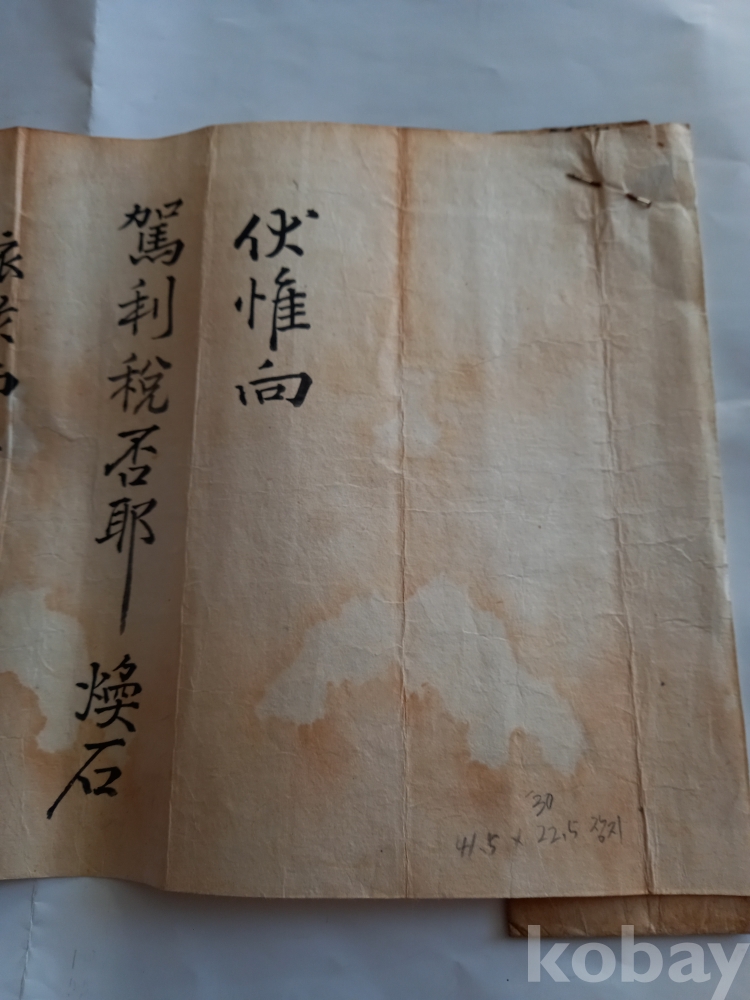 伏惟向
駕利稅否耶 煥石
30
41.5 x 22.5 장지
kobay